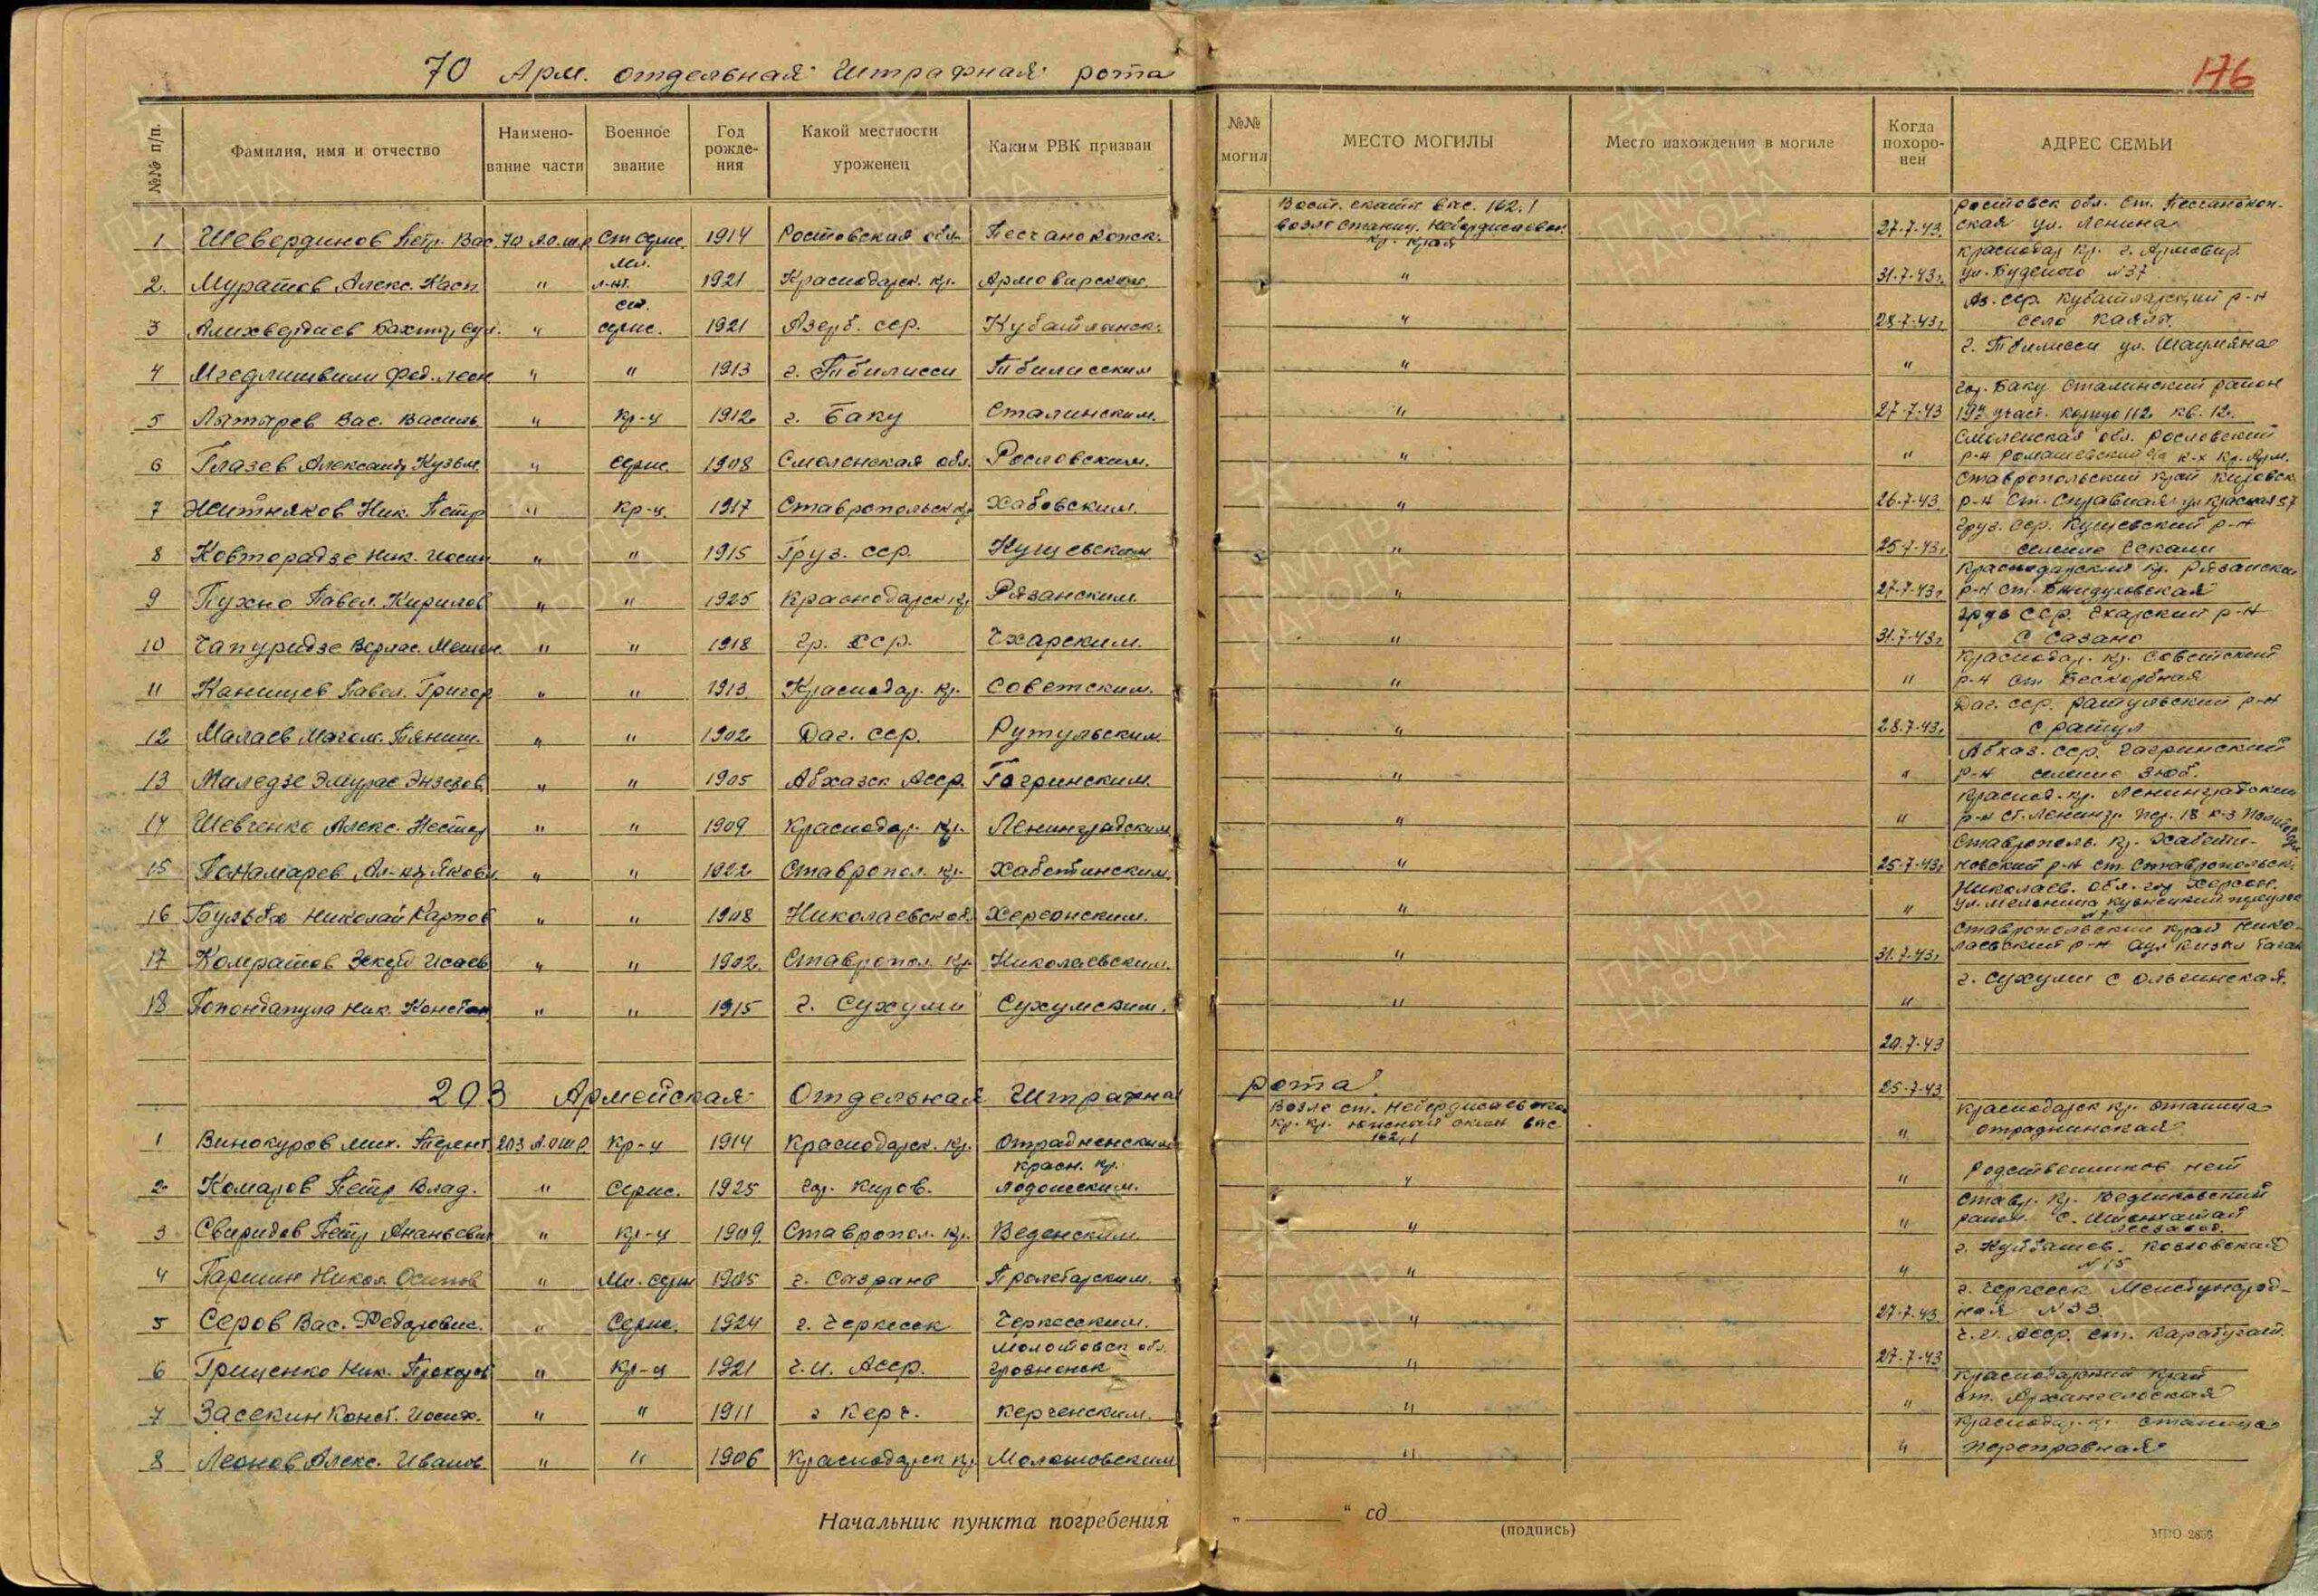 70 Арм. отдельная Штрафная рота
176
№№ п/п.
Фамилия, имя и отчество
Наимено-
вание части
Военное
звание
Год
рожде-
ния
Какой местности
уроженец
Каким РВК призван
№№
могил
МЕСТО МОГИЛЫ
Место нахождения в могиле
Когда
похоро-
нен
АДРЕС СЕМЬИ
1 Шевердинов Петр. Вас. 70 А.О.Ш.Р. Ст серж. 1914 Ростовская обл. Песчанокопск. Вост. скаты выс. 162.1 возле станиц. Неберджаевск. Кр. края 27-7-43. Ростовск обл. Ст. Песчанокоп-
ская ул. Ленина
2. Муратов Алекс. Касп " Мл. л-нт. 1921 Краснодарск. кр. Армовирском. " 31.7.43г. Краснодар Кр. г. Армовир.
ул. Буденого №37
3 Алихвердиев Бахтяр Сул. " ст. серж. 1921 Азерб. сср. Кубатлинск. " 28-7-43г. Аз. сср. Кубатларский р-н
село Каялы.
4 Мгедлишвили Фед. Леон " " 1913 г. Тбилисси Тбилисским " " г. Тбилисси ул. Шаумяна
5 Латарев Вас. Василь " Кр-ц 1912 г. Баку Сталинским. " 27-7-43 гор. Баку Сталинский район
19й участ. корпус 112 кв. 12.
6 Глазев Александр Кузьм. " серж. 1908 Смоленская обл. Рословским. " " Смоленская обл. Рословский
р-н Ромашевский с/с к-х Кр. Арм.
7 Житняков Ник. Петр " Кр-ц. 1917 Ставропольск кр Хабовским. " 26-7-43. Ставропольский край Кировск.
р-н Ст. Справная ул Красная 57
8 Ковторадзе Ник. Иосип " " 1915 Груз. сср. Кущевским " 25-7-43г. Груз. сср. Кущевский р-н
селение Секами
9 Пухно Павел. Кирилов " " 1925 Краснодарск кр. Рязанским. " 27-7-43г. Краснодарский кр. Рязански
р-н ст. Бжидуховская
10 Чапуридзе Верлас. Мошен. " " 1918 Гр. ССР. Чхарским. " 31.7-43г. Груз ССР. Чхарский р-н
с Сазано
11 Канищев Павел. Григор " " 1913 Краснодар. кр. Советским. " " Краснодар. кр. Советский
р-н ст Бескорбная
12 Малаев Магом. Тяниш. " " 1902 Даг. сср. Рутульским. " 28.7-43г. Даг. сср. Ратульский р-н
с Ратул
13 Миледзе Эмурас Энзезов " " 1905 Абхазск Асср. Гагринским. " " Абхаз. сср. Гагринский
р-н селение Зюб.
14 Шевченко Алекс. Нестер " " 1909 Краснодар. кр. Ленинградским " " Краснод. кр. Ленинградским
р-н ст. Ленингр. пер. 18 к-з
15 Понамарев Ал-нд. Яковл " " 1922 Ставропол. кр. Хабетинским. " 25-7-43г. Ставрополь. кр. Хабети-
новский р-н ст. Ставропольск.
16 Бульба Николай Карпов " " 1908 Николаевск обл Херсонским. " " Николаев. обл. гор Херсон.
ул. Мельница Кузнецкий переулок
№7
17 Комратов Зекуб Исаев " " 1902. Ставропол. кр. Николаевским. " 31.7-43г. Ставропольский край Нико-
лаевский р-н аул Кизил Тоган
18 Попондапула Ник. Констан " " 1915 г. Сухуми Сухумским. " " г. Сухуми с Ольгинская.
20.7-43
203 Армейская Отдельная Штрафна рота. 25-7-43
1 Винокуров Мих. Терент. 203 А.О.Ш.Р. Кр-ц 1914 Краснодарск. кр. Отрадненским Возле ст. Неберджаевская Кр. Кр. южный скат выс 162,1 " Краснодарск кр. станица
Отраднинская
2 Комаров Петр Влад. " Серж. 1925 гор. Киров. Красн. кр. Лодошским. " " Родственников нет
3 Свиридов Петр Ананьевич " Кр-ц 1909. Ставропол. кр. Веденским. " " Ставр. кр. Веденковский
район. с.
4 Паршин Никол. Осипов " Мл. серж 1905 г. Сызрань Пролетарским. " " г. Куйбышев. Козловская
№15
5 Серов Вас. Федорович. " Серж. 1924 г. Черкеск Черкесским. " 27-7-43. г. Черкеск Международ-
ная №33.
6 Гриценко Ник. Прохоров " Кр-ц 1921 Ч.И. Асср. Молотовск обл. Грозненск " 27-7-43 Ч.И. Асср. ст. Карабулат.
7 Засекин Конст. Иосиф. " " 1911 г Керч. Керченским. " " Краснодарский край
ст. Архангельская
8 Леонов Алекс. Иванов. " " 1906 Краснодарск кр Молотовским " " Краснодар. кр. станица
Переправная
Начальник пункта погребения „ “ сд
(подпись)
МПО 2856
ПАМЯТЬ НАРОДА